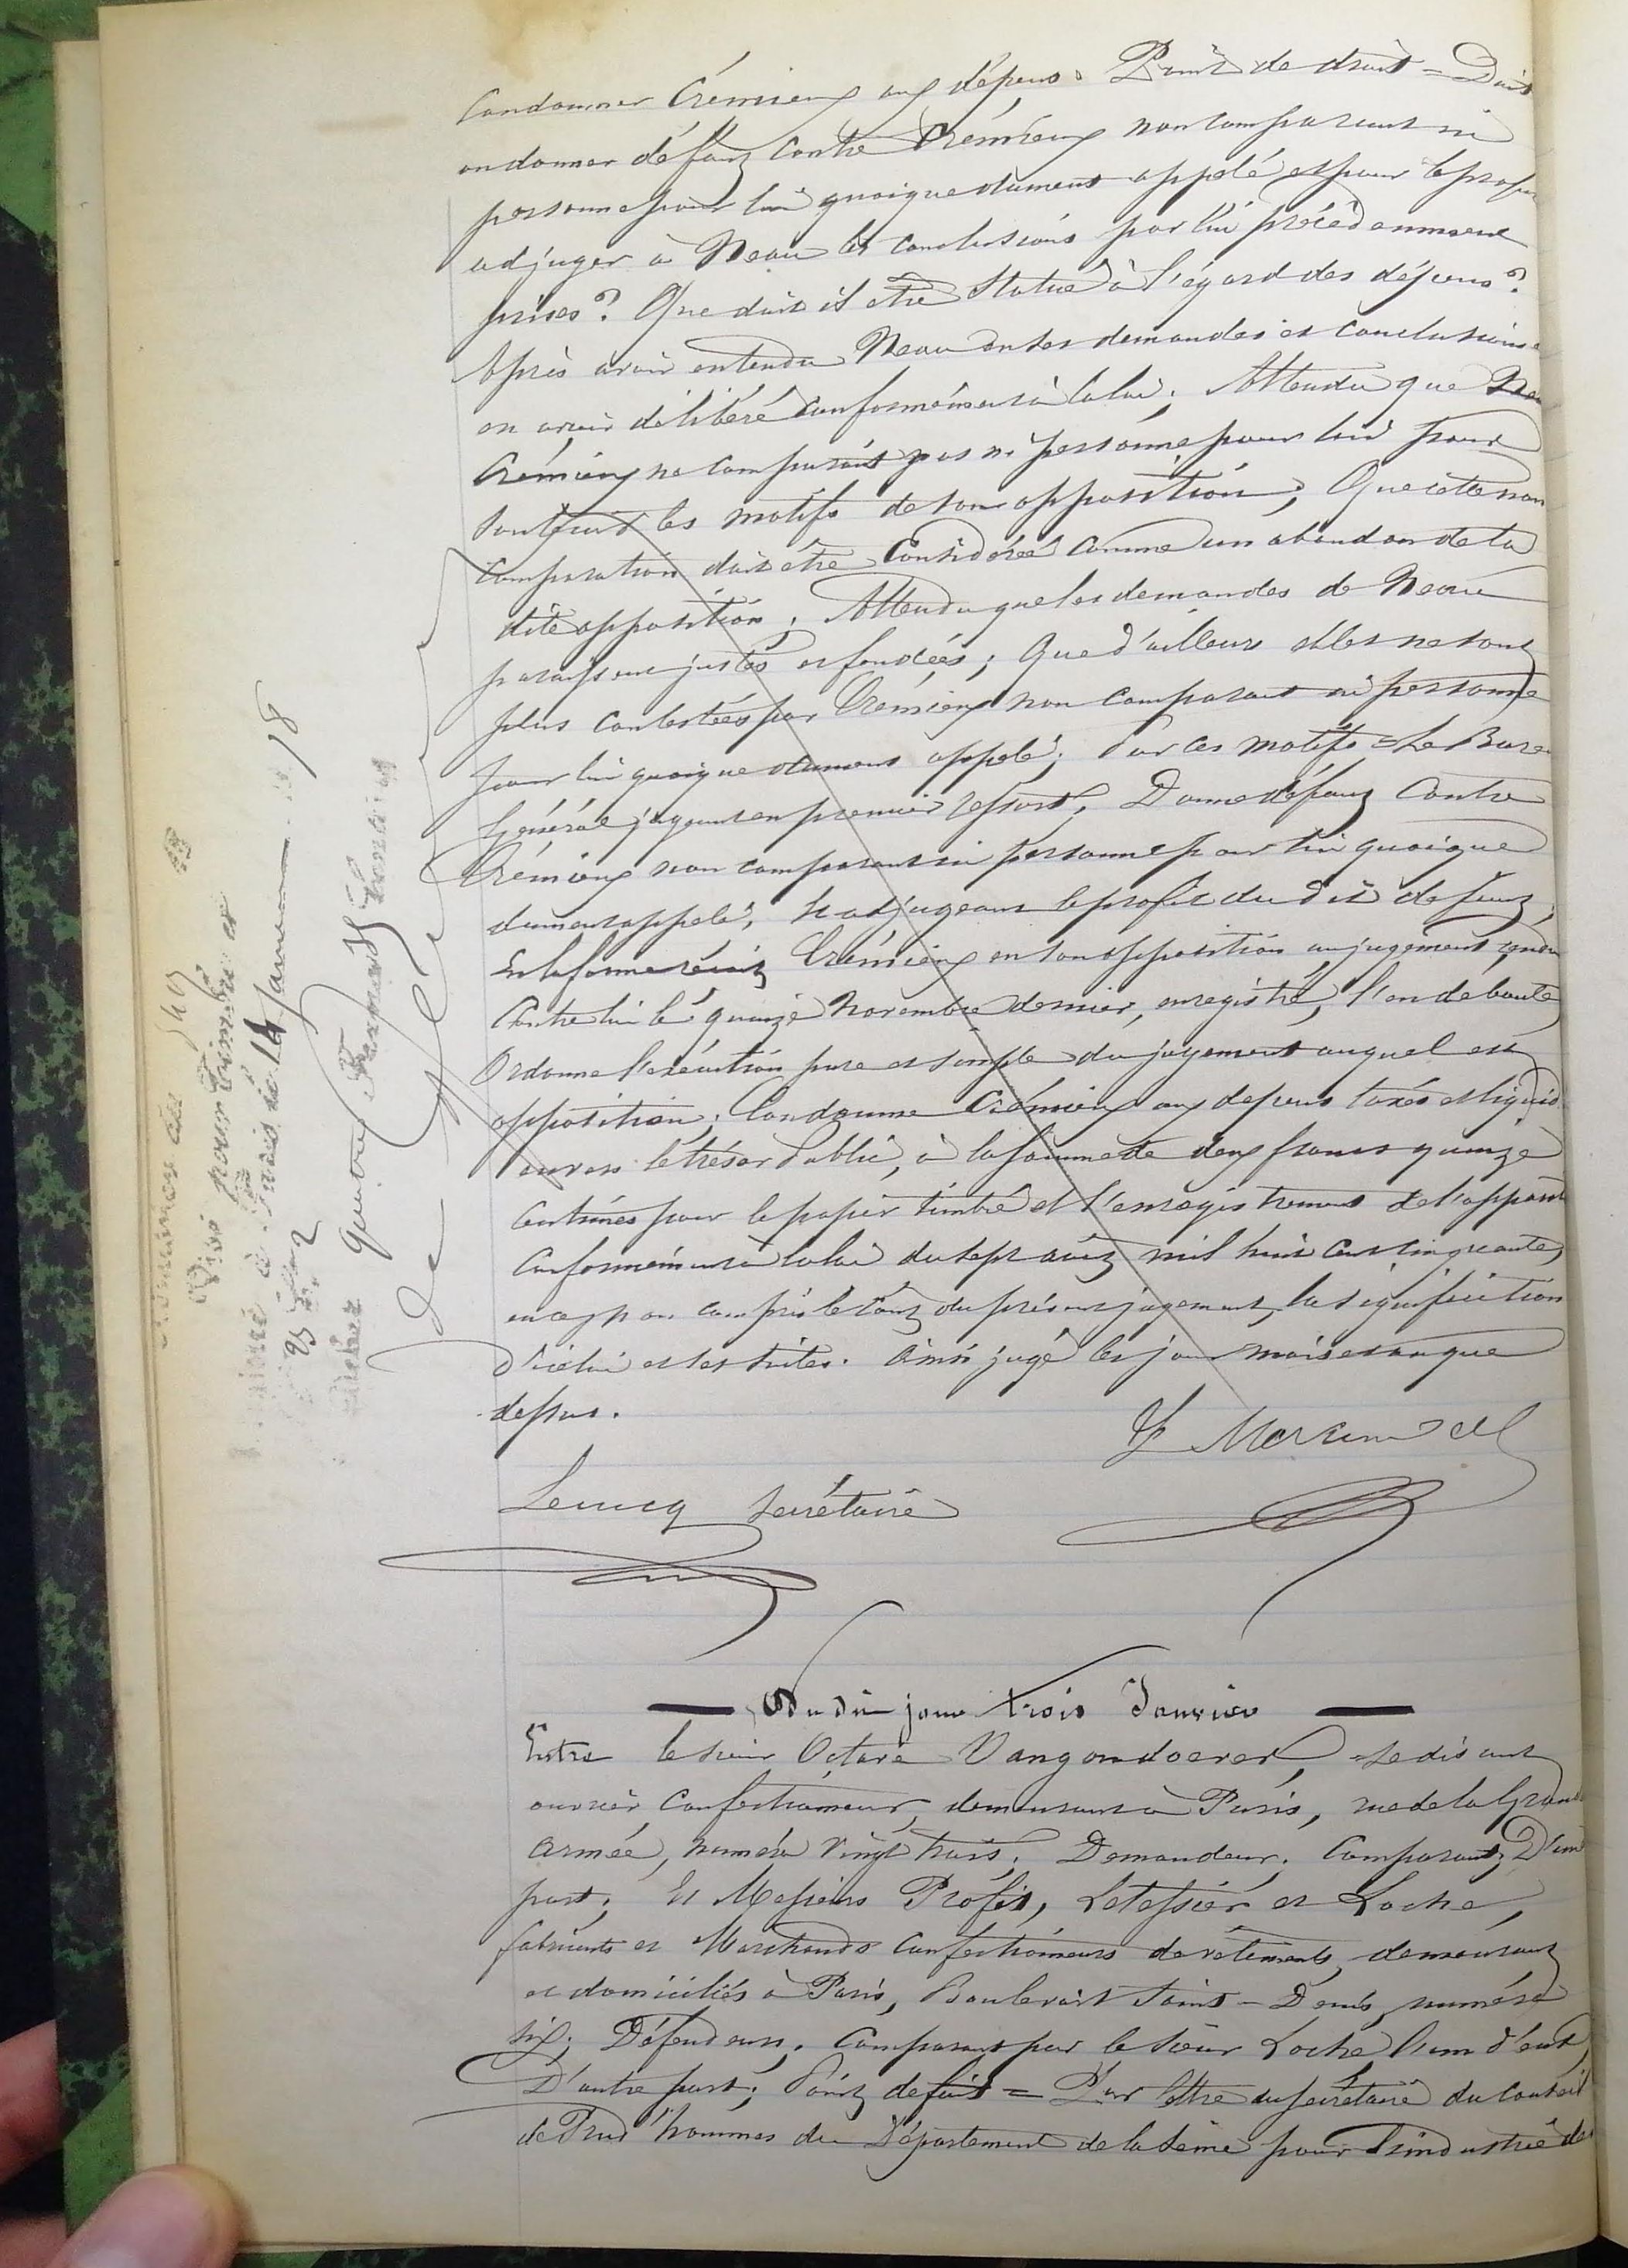 Condamner Crémieux aux dépens. Point de droit = Doit
on donner défaut contre Crémieux non comparant ni
personne pour lui quoique dument appelé et pour le profit
adjuger à Neau les conclusions par lui précédemment
prises? Que doit il être statué à l'égard des dépens?
Après avoir entendu Neau en ses demandes et conclusions
en avoir délibéré conformément à la loi; Attendu que
Crémieux ne comparait pas ni personne pour lui pour
soutenir les motifs de son opposition; Que cette non
comparution doit être considérée comme un abandon de la
dite opposition; Attendu que les demandes de Neau
paraissent justes et fondées; Que d'ailleurs elles ne sont
plus contestées par Crémieux non comparant ni personne
pour lui quoique dument appelé; Par ces motifs = Le Bureau
Général jugeant en premier ressort; Donne défaut contre
Crémieux non comparant ni personne pour lui quoique
dument appelé; Et adjugeant le profit du dit défaut;
En la forme reçoit Crémieux en son opposition au jugement rendu
contre lui le quinze Novembre dernier, enregistré, l'en déboute
Ordonne l'exécution pure et simple du jugement auquel est
opposition; Condamne Crémieux aux dépens taxés et liquidés
envers le trésor Public, à la somme de deux francs quinze
centimes pour le papier timbré et l'enregistrement de l'opposition
conformément à la loi du sept août mil huit cent cinquante,
en ce non compris le coût du présent jugement, la signification
d'icelui et ses suites. Ainsi jugé les jour mois et an que
dessus.
Lecucq secrétaire
Visé pour timbre et
à Paris le 14 Janvier 18
quatre
Du dit jour trois Janvier
Entre le sieur Octave Vangondoever, se disant
ouvrier confectionneur, demeurant à Paris, rue de la Grande
Armée, numéro vingt trois; Demandeur; Comparant; D'une
part; Et Messieurs Profit, Letessier et Loche,
fabricants et Marchands confectionneurs de vêtements, demeurant
et domiciliés à Paris, Boulevart Saint-Denis, numéro
six; Défendeurs; Comparant par le sieur Loche l'un d'eux,
D'autre part; Point de fait = Par lettre du secrétaire du Conseil
de Prud'hommes du Département de la Seine pour l'industrie des